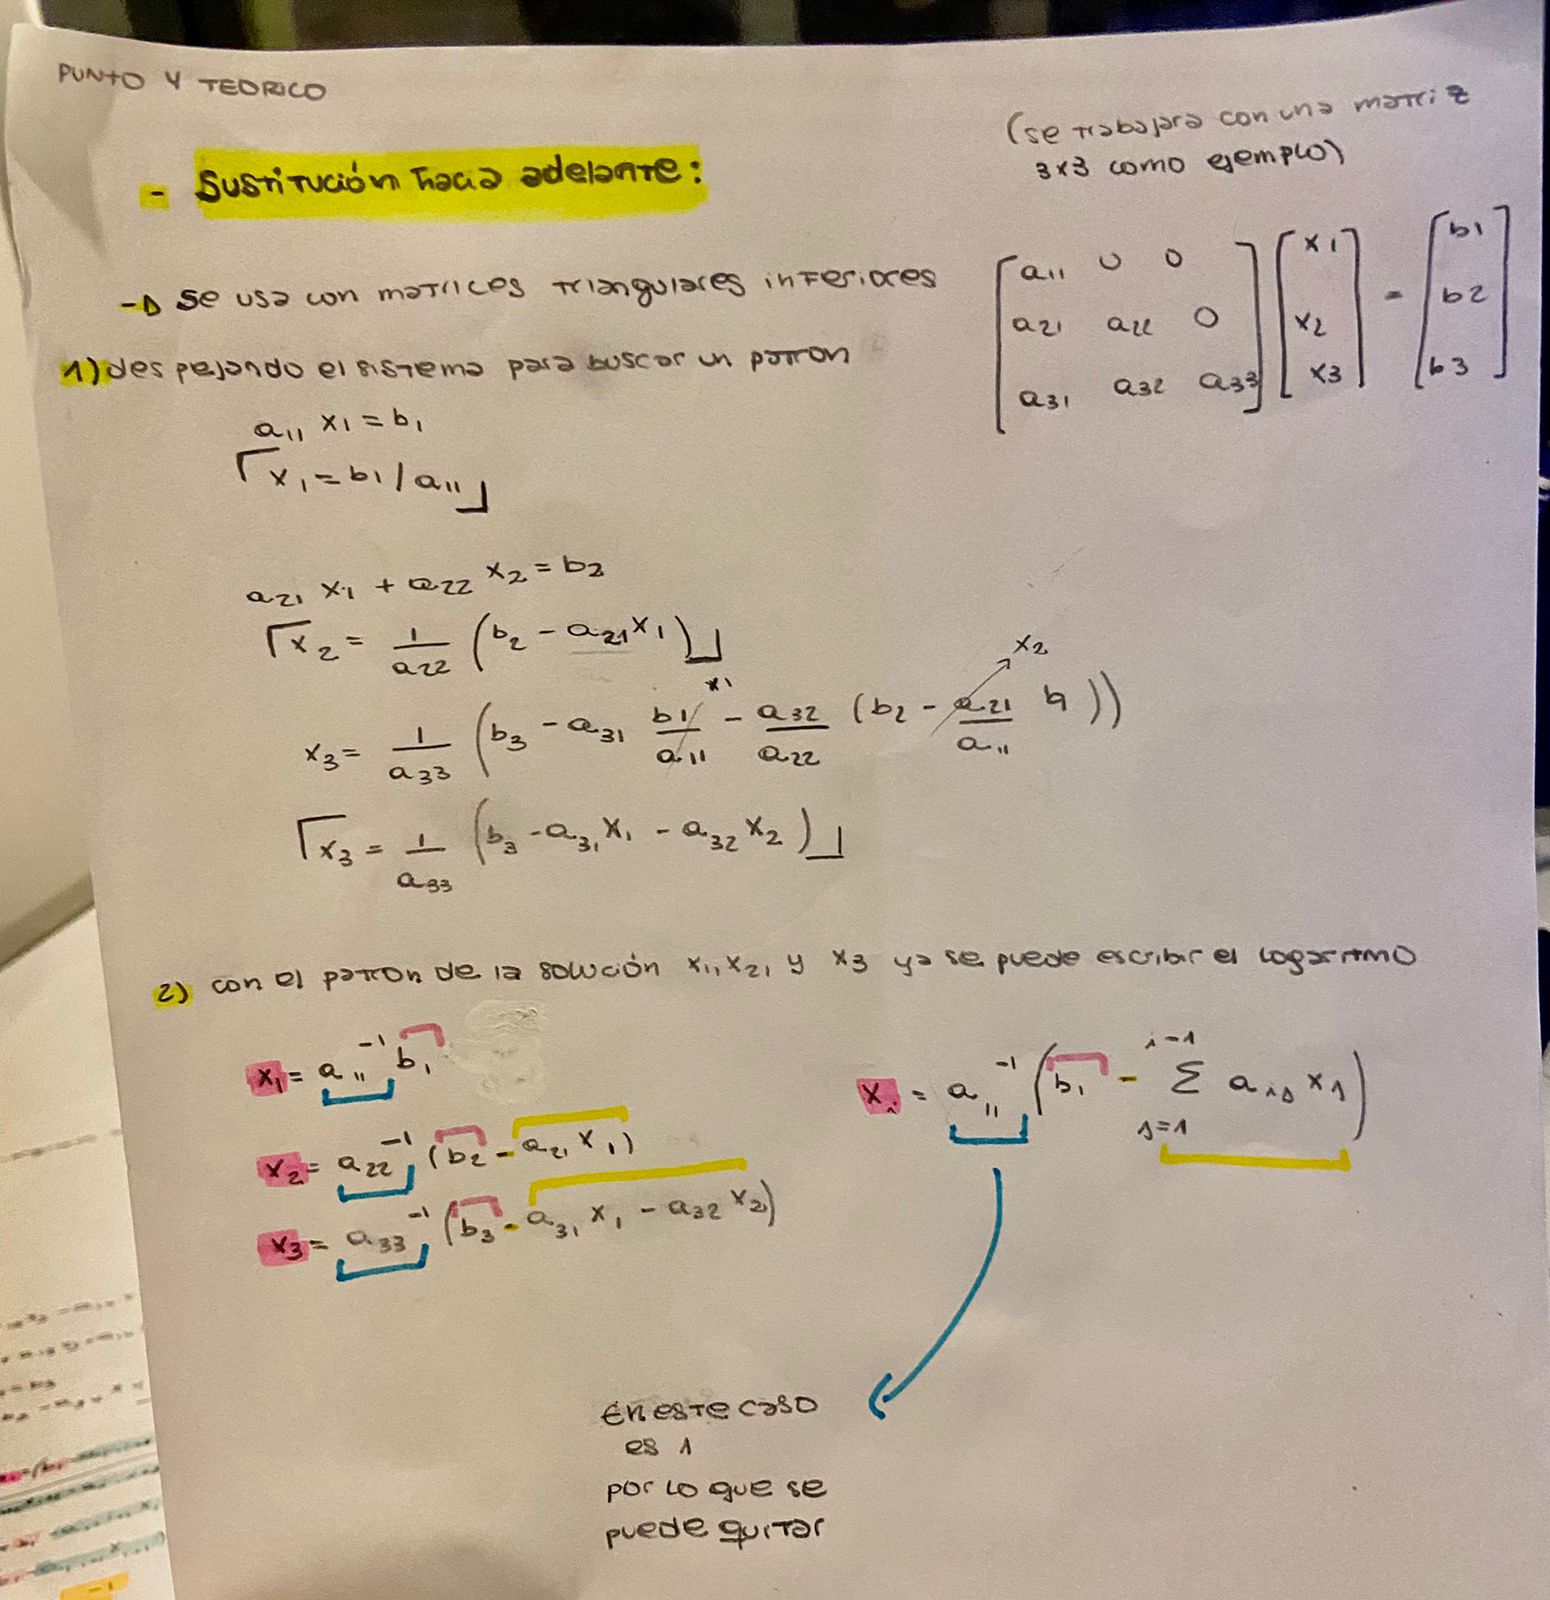 PUNTO 4 TEORICO
(se trabajara con una matriz
3x3 como ejemplo)
- Sustitución hacia adelante:
→ Se usa con matrices triangulares inferiores
[a11 0 0; a21 a22 0; a31 a32 a33] [x1; x2; x3] = [b1; b2; b3]
1) despejando el sistema para buscar un patron
a11 x1 = b1
x1 = b1 / a11
a21 x1 + a22 x2 = b2
x2 = 1/a22 (b2 - a21 x1)
x1
x2
x3 = 1/a33 (b3 - a31 b1/a11 - a32/a22 (b2 - a21/a11 b1))
x3 = 1/a33 (b3 - a31 x1 - a32 x2)
2) con el patron de la solución x1, x2, y x3 ya se puede escribir el logaritmo
x1 = a11^-1 b1
x2 = a22^-1 (b2 - a21 x1)
x3 = a33^-1 (b3 - a31 x1 - a32 x2)
xi = aii^-1 (bi - Σ_{j=1}^{i-1} aij xj)
En este caso
es 1
por lo que se
puede quitar